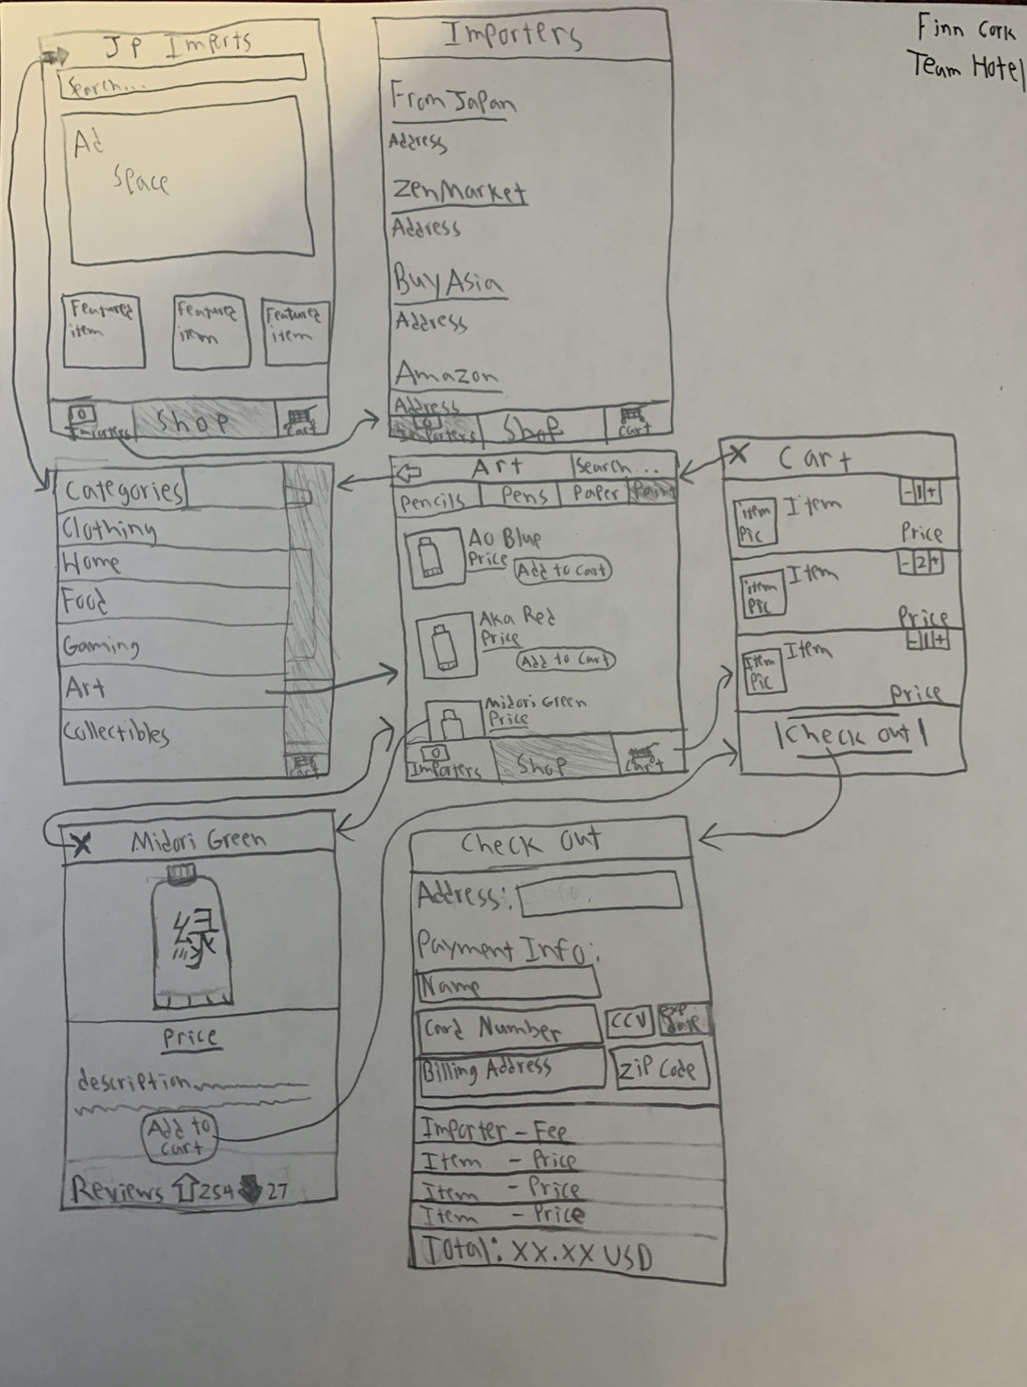 Finn Cork
Team Hotel
JP Imports
Search...
Ad
Space
Featured
item
Featured
item
Featured
item
Importers
Shop
Cart
Importers
From Japan
Address
ZenMarket
Address
BuyAsia
Address
Amazon
Address
Importers
Shop
Cart
Categories
Clothing
Home
Food
Gaming
Art
Collectibles
Cart
Art
Search...
Pencils
Pens
Paper
Paint
Ao Blue
Price
Add to Cart
Aka Red
Price
Add to Cart
Midori Green
Price
Importers
Shop
Cart
X Cart
item
Pic
Item
- 1 +
Price
item
Pic
Item
- 2 +
Price
Item
Pic
Item
- 1 +
Price
Check out
X Midori Green
緑
Price
description
Add to
Cart
Reviews 254 27
Check Out
Address:
Payment Info:
Name
Card Number
CCV
exp
date
Billing Address
Zip Code
Importer - Fee
Item - Price
Item - Price
Item - Price
Total: XX.XX USD